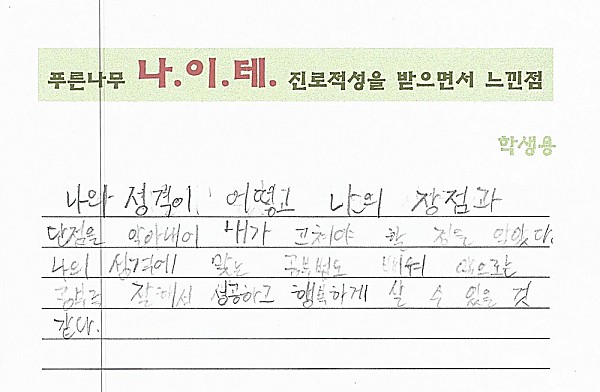 푸른나무 나.이.테. 진로적성을 받으면서 느낀점
학생용
나의 성격이 어떻고 나의 장점과
단점을 알아내어 내가 고쳐야 할 점을 알았다.
나의 성격에 맞는 공부법도 배워 앞으로는
공부를 잘해서 성공하고 행복하게 살 수 있을 것
같다.